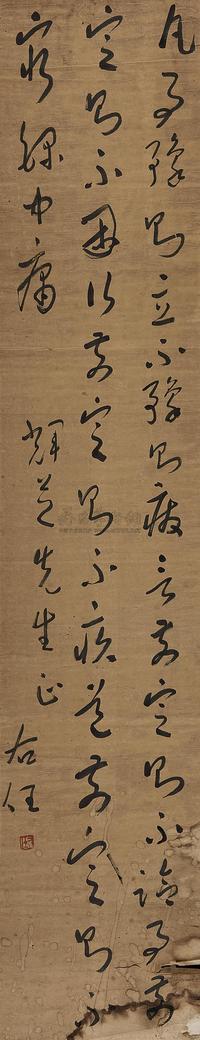 凡事豫則立不豫則廢言前定則不跲事前
定則不困行前定則不疚道前定則不
窮 錄中庸
輝芝先生正
右任